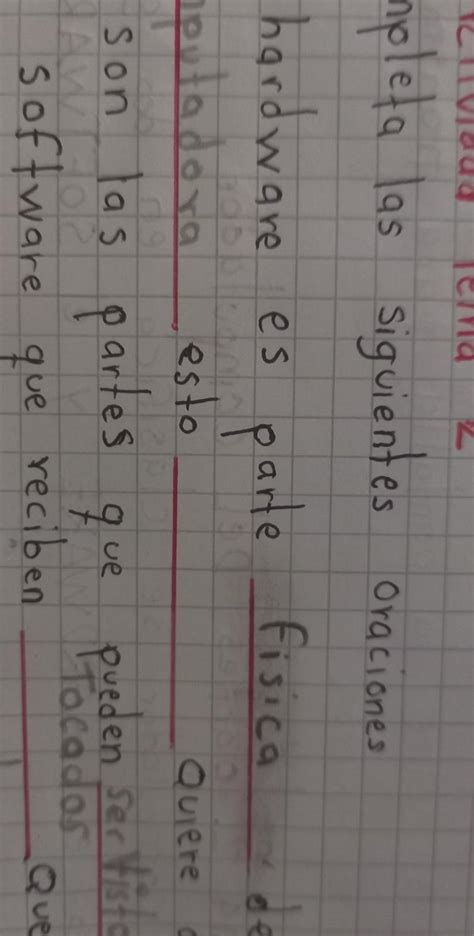 Tema 2
las siguientes oraciones
hardware es parte física de
putadora esto Quiere
son las partes que pueden ser visto
Tocados
software que reciben Que